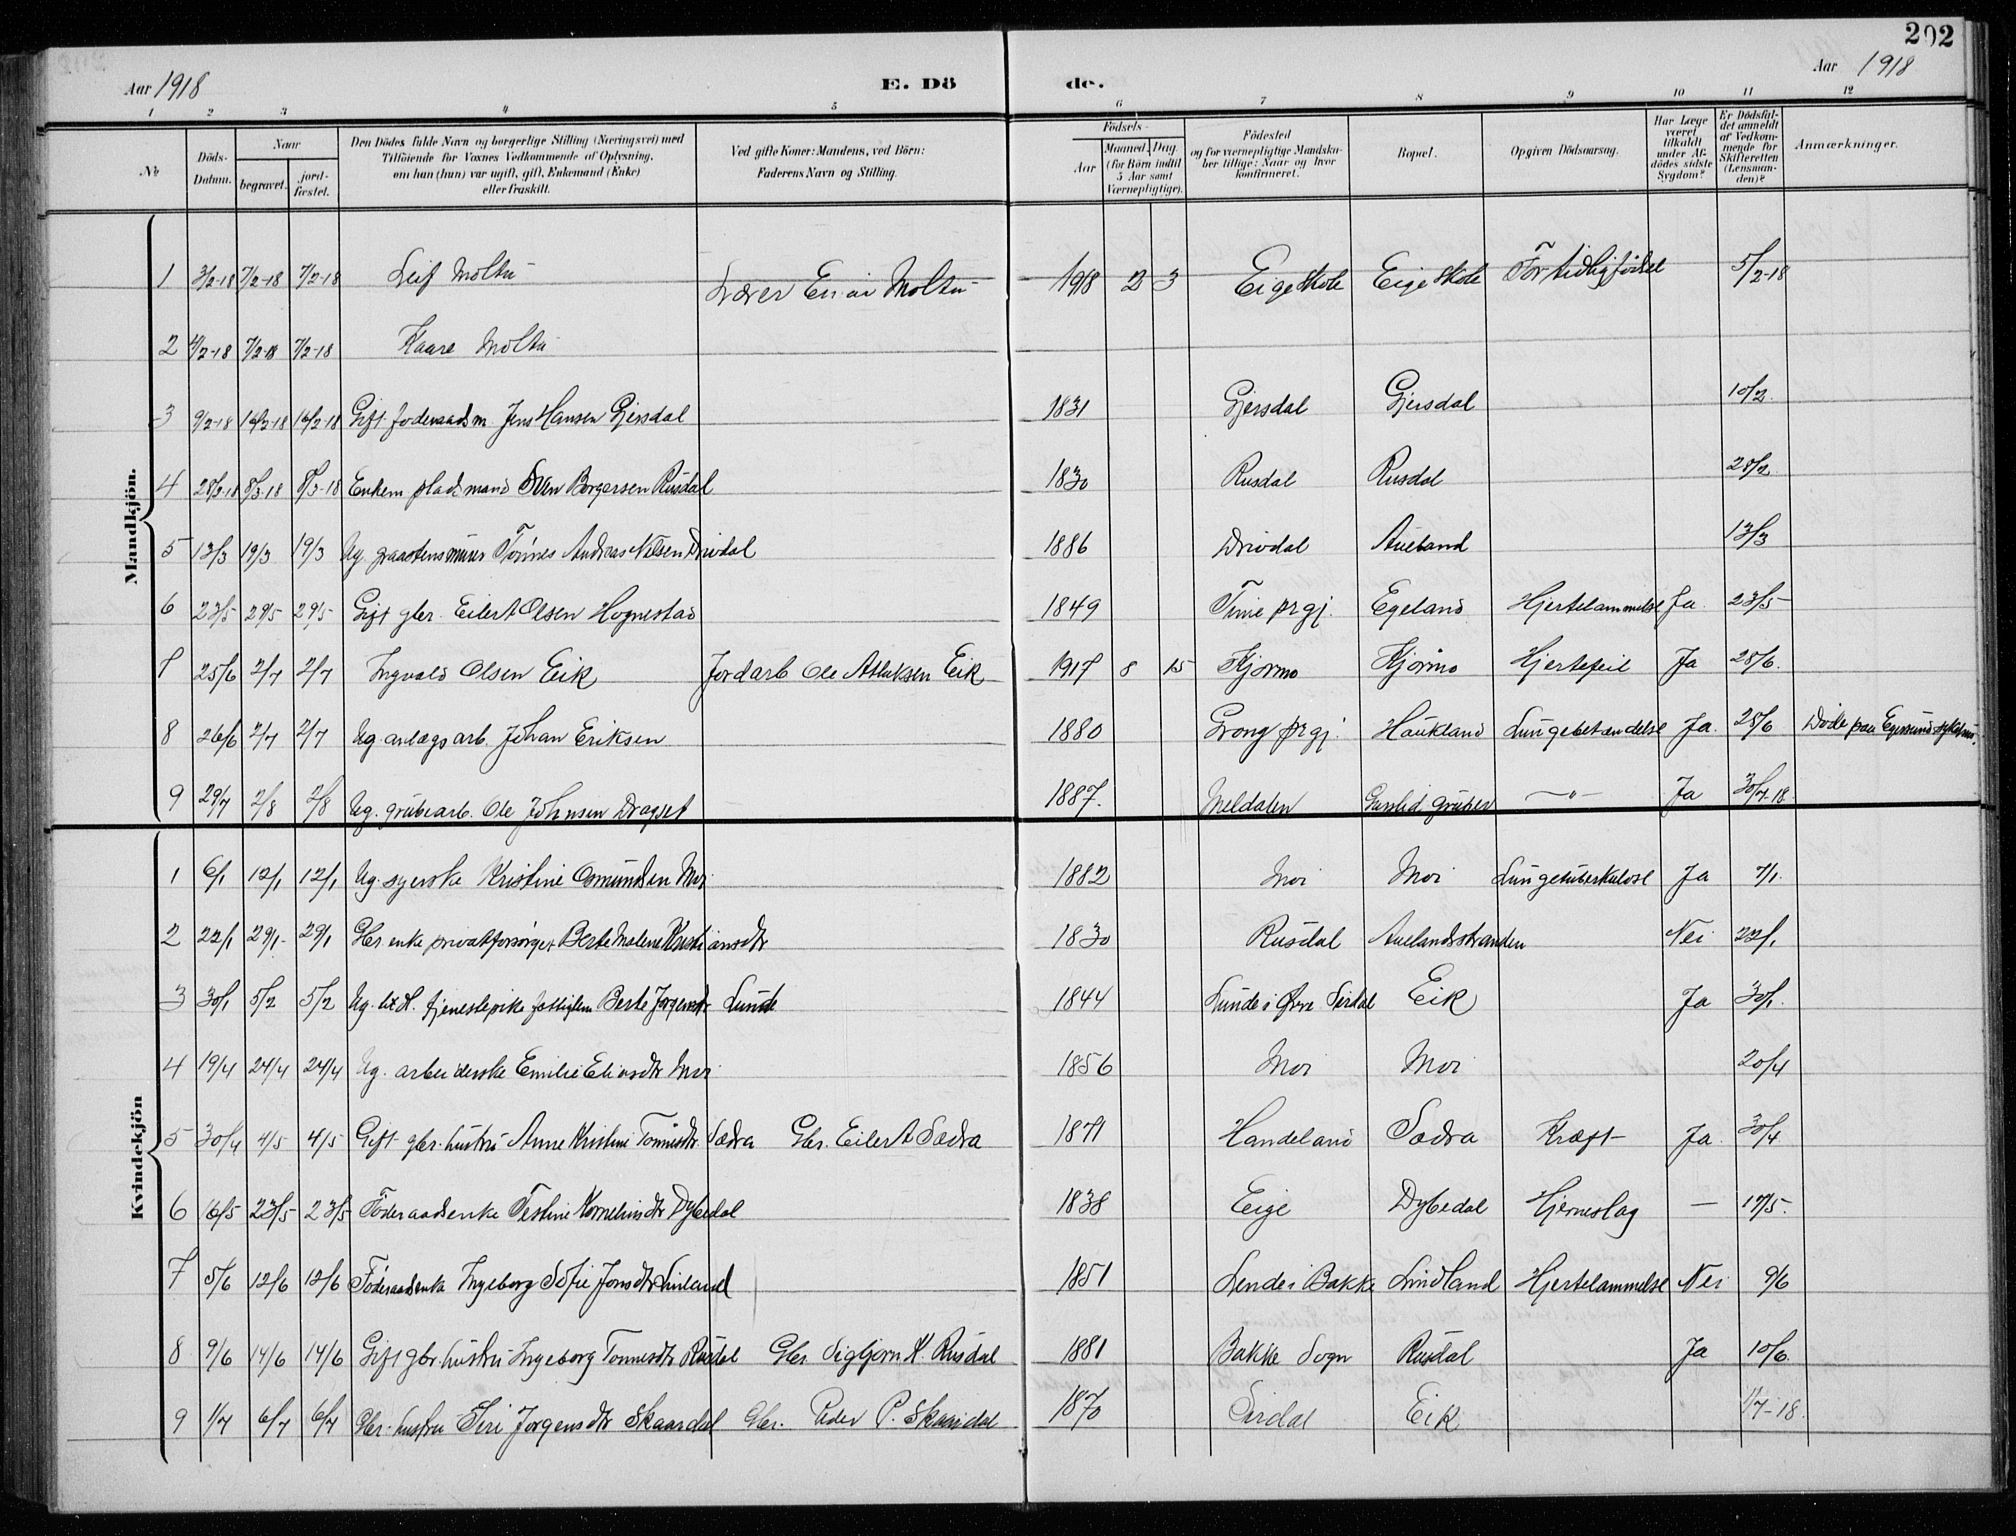 202
Aar 1918
E. Dö de.
Aar 1918
1 2 3 4 5 6 7 8 9 10 11 12
№
Döds-Datum.
Naar
begravet.
jord-fæstet.
Den Dödes fulde Navn og borgerlige Stilling (Næringsvei) med Tilföiende for Voxnes Vedkommende af Oplysning, om han (hun) var ugift, gift, Enkemand (Enke) eller fraskilt.
Ved gifte Koner: Mandens, ved Börn: Faderens Navn og Stilling.
Födsels-
Aar
Maaned. Dag.
(for Börn indtil 5 Aar samt Værnepligtige).
Födested og for værnepligtige Mandskaber tillige: Naar og hvor konfirmeret.
Bopæl.
Opgiven Dödsaarsag.
Har Læge været tilkaldt under Afdödes sidste Sygdom?
Er Dödsfaldet anmeldt af Vedkommende for Skifteretten (Lensmanden)?
Anmærkninger.
Mandkjön.
1 3/2-18 7/2-18 7/2-18 Leif Moltu Lærer Moltu 1918 2 3 Eige skole Eige skole For tidlig födsel 5/2-18
2 4/2-18 7/2-18 7/2-18 Kaare Moltu
3 9/2-18 16/2-18 16/2-18 Gift föderaadsm. Jens Hansen Gjersdal 1831 Gjersdal Gjersdal 10/2
4 28/2-18 8/3-18 8/3-18 Enkem pladsmand Sven Borgersen Rusdal 1830 Rusdal Rusdal 28/2
5 13/3 19/3 19/3 Ug. graastensmurer Tönnes Andreas Nilsen Drivdal 1886 Drivdal Aueland 13/3
6 23/5 29/5 29/5 Gift gbr. Eilert Olsen Hognestad 1849 Time prgj. Egeland Hjertelammelse Ja 23/5
7 25/6 2/7 2/7 Ingvald Olsen Eik Jordarb Ole Atlaksen Eik 1917 8 15 Kjörmo Kjörmo Hjertefeil Ja 28/6
8 26/6 2/7 2/7 Ug anlægsarb. Johan Eriksen 1880 Grong prgj. Haukland Lungebetændelse Ja 28/6 Döde paa Egersund sykehus.
9 29/7 2/8 2/8 Ug. grubearb. Ole Johnsen Dragset 1887. Meldalen Gursli gruber —"— Ja 30/7-18
Kvindekjön
1 6/1 12/1 12/1 Ug. syerske Kristine Osmundsen Moi 1882 Moi Moi Lungetuberkulose Ja 7/1
2 22/1 29/1 29/1 Gbr enke privatforsörget Berte Malene Kristiansdtr 1830 Rusdal Auelandsstranden Nei 22/1
3 30/1 5/2 5/2 Ug. fjenestepike fattiglem Berte Jorgensdtr Lunde 1844 Lunde i Övre Sirdal Eik Ja 30/1
4 19/4 24/4 24/4 Ug. arbeiderske Emilie Eliasdtr Moi 1856 Moi Moi 20/4
5 30/4 4/5 4/5 Gift gbr. hustru Anne Kristine Tönnesdtr Sædra Gbr. Eilert Sædra 1871 Handeland Sædra Kræft Ja 30/4
6 16/5 23/5 23/5 Föderaadsenke Testine Kornelius dtr Dybedal 1838 Eige Dybedal Hjerneslag — 17/5
7 5/6 12/6 12/6 Föderaadsenke Ingeborg Sofie Jonsdtr Linland 1851 Lende i Bakke Lindland Hjertelammelse Nei 9/6
8 9/6 14/6 14/6 Gift gbr. hustru Ingeborg Tonnesdtr Rusdal Gbr. Sigbjorn K. Rusdal 1881 Bakke Sogn Rusdal Ja 10/6
9 1/7 6/7 6/7 Gbr. hustru Siri Jorgensdtr Skaardal Gbr. Peder P. Skaardal 1870 Sirdal Eik 1/7-18